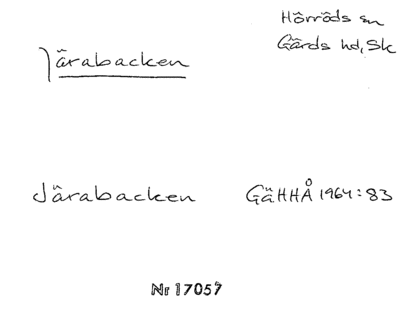 Järabacken
Hörröds sn
Gärds hd, Sk
Järabacken GäHHÅ 1964:83
Nr 17057